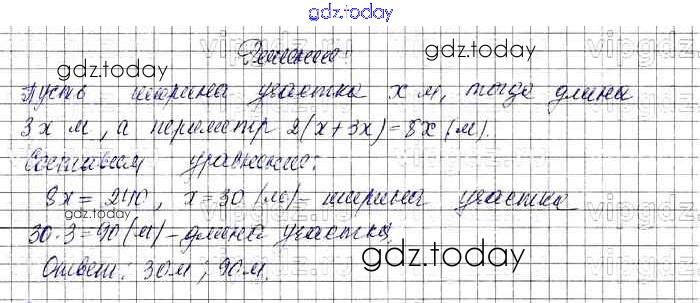 gdz.today
Решение:
gdz.today
Пусть ширина участка x м, тогда длина
3x м, а периметр 2(x+3x)=8x (м).
Составим уравнение:
8x = 240, x=30 (м)- ширина участка
gdz.today
30·3=90 (м)-длина участка.
gdz.today
Ответ: 30м; 90м.